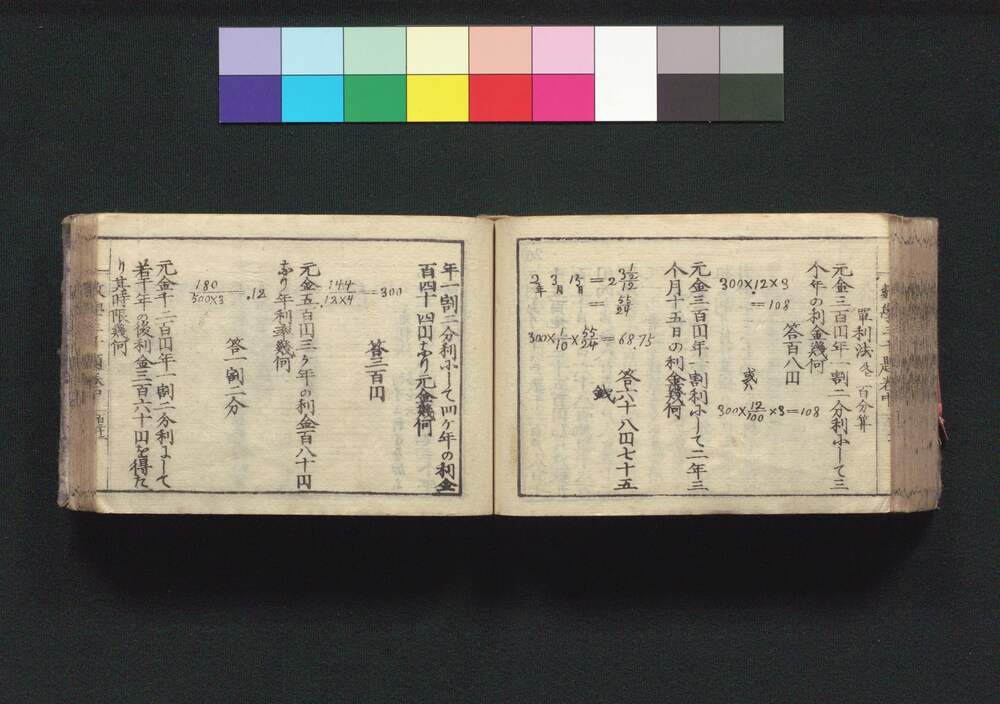 單利法 百分算
元金三百円年一割二分利ニして三
个年の利金幾何
答百八円
300×.12×3
=108
或ハ
300×12/100×3=108
元金三百円年一割利ニして二年三
个月十五日の利金幾何
答六十八円七十五
錢
2年 3月 15日 = 2 3 1/2/12
= 55/24
300×1/10×55/24=68.75
年一割二分利ニして四ケ年の利金
百四十四円なり元金幾何
答三百円
144/.12×4=300
元金五百円三ケ年の利金百八十円
なり年利率幾何
答一割二分
180/500×3=.12
元金千二百円年一割二分利よして
若干年の後利金三百六十円を得た
り其時限幾何